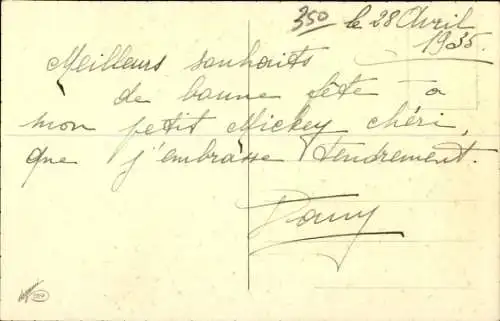 350 le 28 Avril
1935.
Meilleurs souhaits
de bonne fête a
mon petit Mickey chéri,
que j'embrasse tendrement.